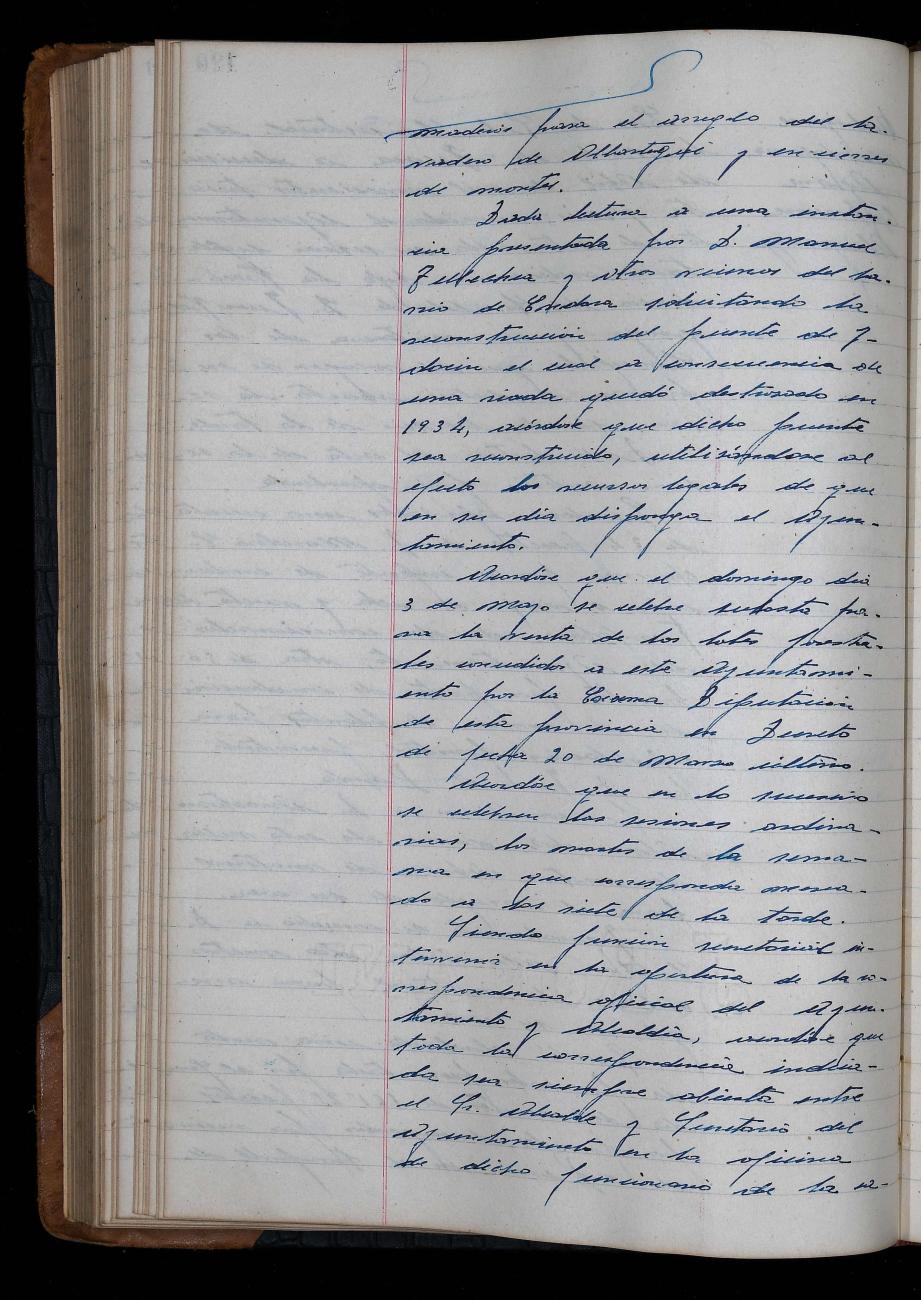 maderas para el arreglo del la-
vadero de Albastegui y en cierres
de montes.
Dada lectura a una instan-
cia presentada por D. Manuel
Tellechea y otros vecinos del ba-
rrio de Endara solicitando la
reconstrucción del puente de Y-
docin el cual a consecuencia de
una riada quedó destrozado en
1934, acórdose que dicho puente
sea reconstruido, utilizándose al
efecto los recursos legales de que
en su día disponga el Ayun-
tamiento.
Acordóse que el domingo día
3 de Mayo se celebre subasta pa-
ra la venta de los lotes foresta-
les concedidos a este Ayuntami-
ento por la Excma Diputación
de esta provincia en Decreto
de fecha 20 de Marzo último.
Acordóse que en lo sucesivo
se celebren las sesiones ordina-
rias, los martes de la sema-
na en que corresponda
a las siete de la tarde.
Siendo función secretarial in-
tervenir en la apertura de la co-
rrespondencia oficial del Ayun-
tamiento y Alcaldía, acordóse que
toda la correspondencia indica-
da sea siempre abierta entre
el Sr. Alcalde y Secretario del
Ayuntamiento en la oficina
de dicho funcionario de la ca-